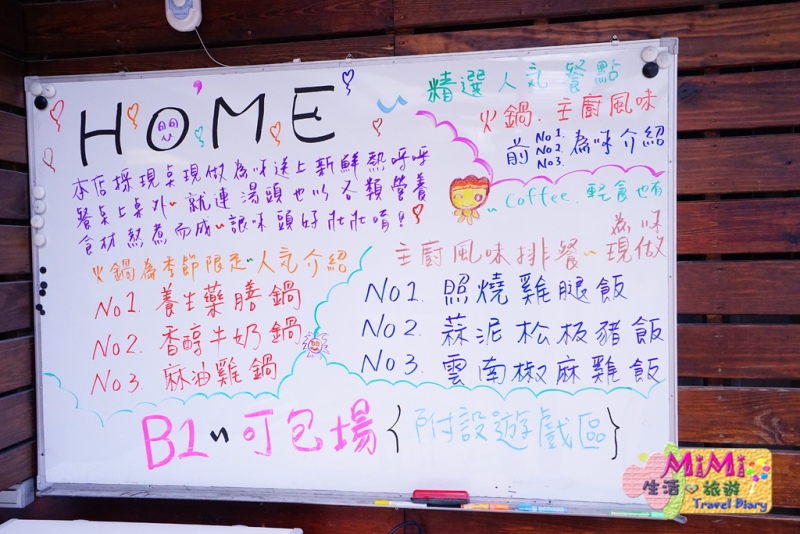 HOME
本店採現桌現做為咪送上新鮮熱呼呼
餐桌上桌外~就連湯頭也以各類營養
食材熬煮而成~讓咪頭好壯壯唷!
精選人氣餐點
火鍋.主廚風味
前 No1. No2. No3. 為咪介紹
~Coffee.輕食也有
火鍋為季節限定~人氣介紹
No1. 養生藥膳鍋
No2. 香醇牛奶鍋
No3. 麻油雞鍋
主廚風味排餐~為咪現做
No1. 照燒雞腿飯
No2. 蒜泥松板豬飯
No3. 雲南椒麻雞飯
B1~可包場{附設遊戲區}
MiMi
生活旅遊
Travel Diary